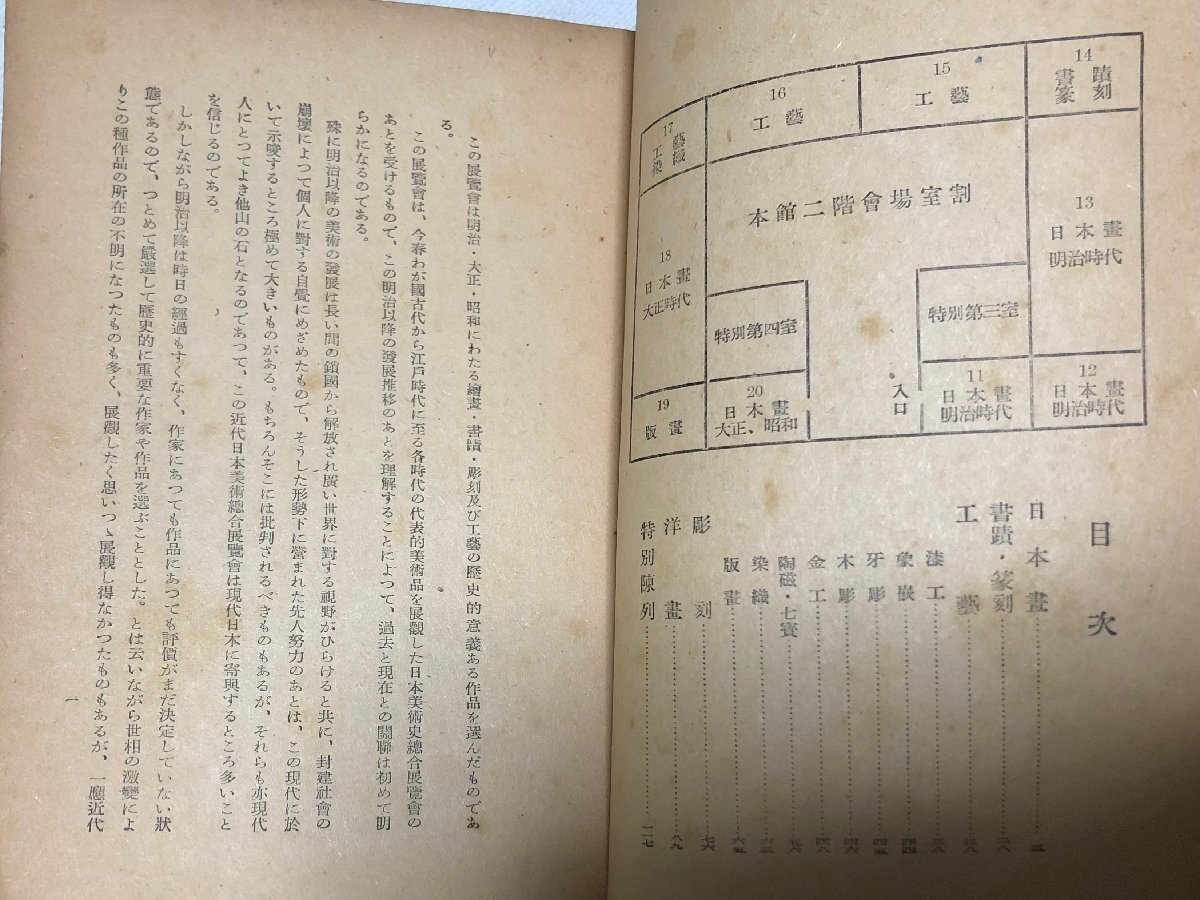 14
書蹟
篆刻
15
工藝
16
工藝
17
工藝
染織
本館二階會場室割
13
日本畫
明治時代
18
日本畫
大正時代
特別第三室
特別第四室
12
日本畫
明治時代
11
日本畫
明治時代
入口
20
日本畫
大正、昭和
19
版畫
目次
日本畫
書蹟・篆刻
工藝
漆工
象嵌
牙彫
木彫
金工
陶磁・七寳
染織
版畫
彫刻……七六
洋畫……八九
特別陳列……一一七
この展覽會は明治・大正・昭和にわたる繪畫・書蹟・彫刻及び工藝の歷史的意義ある作品を選んだものであ
る。
この展覽會は、今春わが國古代から江戸時代に至る各時代の代表的美術品を展觀した日本美術史總合展覽會の
あとを受けるもので、この明治以降の發展推移のあとを理解することによつて、過去と現在との關聯は初めて明
らかになるのである。
殊に明治以降の美術の發展は長い間の鎖國から解放され廣い世界に對する視野がひらけると共に、封建社會の
崩壞によつて個人に對する自覺にめざめたもので、そうした形勢下に營まれた先人努力のあとは、この現代に於
いて示唆するところ極めて大きいものがある。もちろんそこには批判されるべきものもあるが、それらも亦現代
人にとつてよき他山の石となるのであつて、この近代日本美術總合展覽會は現代日本に寄與するところ多いこと
を信じるのである。
しかしながら明治以降は時日の經過もすくなく、作家にあつても作品にあつても評價がまだ決定していない狀
態であるので、つとめて嚴選して歷史的に重要な作家や作品を選ぶこととした。とは云いながら世相の激變によ
りこの種作品の所在の不明になつたものも多く、展觀したく思いつゝ展觀し得なかつたものもあるが、一應近代
一